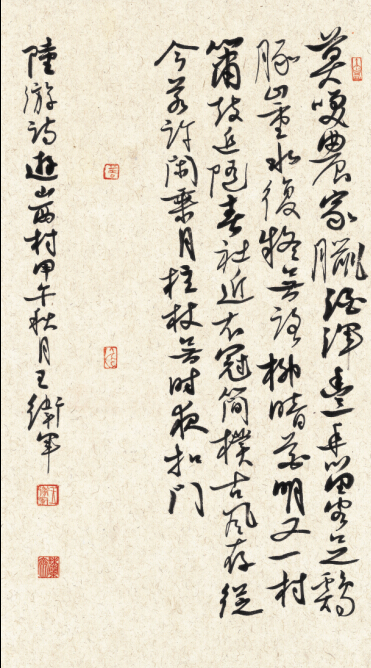 莫笑農家臘酒渾豐年留客足鷄
豚山重水復疑無路柳暗花明又一村
簫鼓追隨春社近衣冠簡樸古風存從
今若許閑乘月拄杖無時夜扣門
陸游詩遊山西村甲午秋月王衛軍